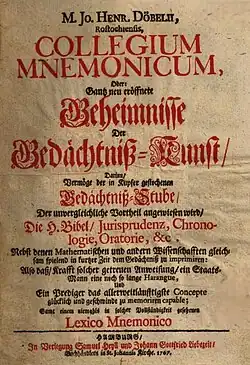 M. Jo. Henr. Döbelii,
Rostochiensis,
COLLEGIUM
MNEMONICUM,
Oder:
Gantz neu eröffnete
Geheimnisse
Der
Gedächtniß-Kunst/
Darinn/
Vermöge der in Kupfer gestochenen
Gedächtniß-Stube/
Der unvergleichliche Vortheil angewiesen wird/
Die H. Bibel/ Jurisprudenz, Chrono-
logie, Oratorie, &c
Nebst denen Mathematischen und andern Wissenschafften gleich-
sam spielend in kurtzer Zeit dem Gedächtniß zu imprimiren:
Also daß/ Krafft solcher getreuen Anweisung/ ein Staats-
Mann eine noch so lange Harangue,
Und
Ein Prediger das allerweitläufftigste Concepte
glücklich und geschwinde zu memoriren capable;
Samt einem niemahls in solcher Vollständigkeit gesehenen
Lexico Mnemonico
HAMBURG/
In Verlegung Samuel Heyl und Johann Gottfried Liebezeit/
Buchhändlern in St. Johannis Kirche. 1707.